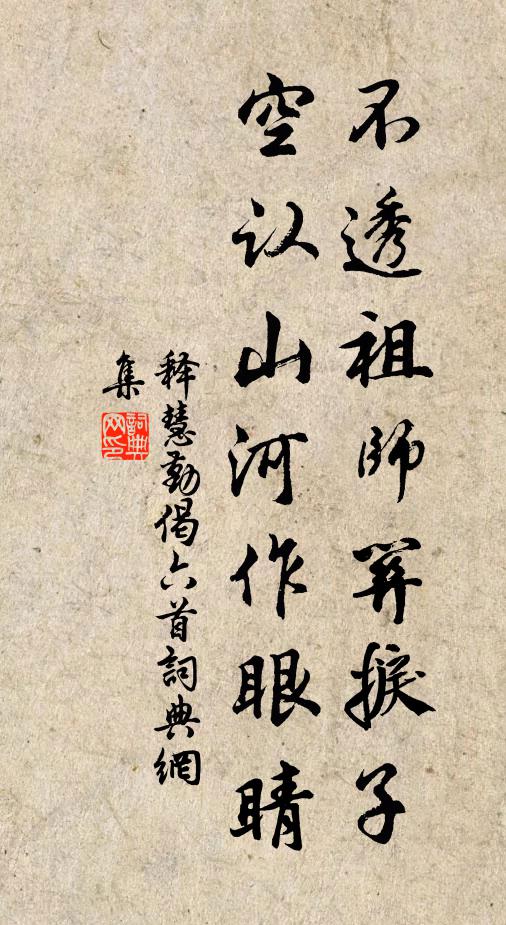 不透祖師關捩子
空认山河作眼睛
释慧勤偈六首詞典網
集
詞典網印